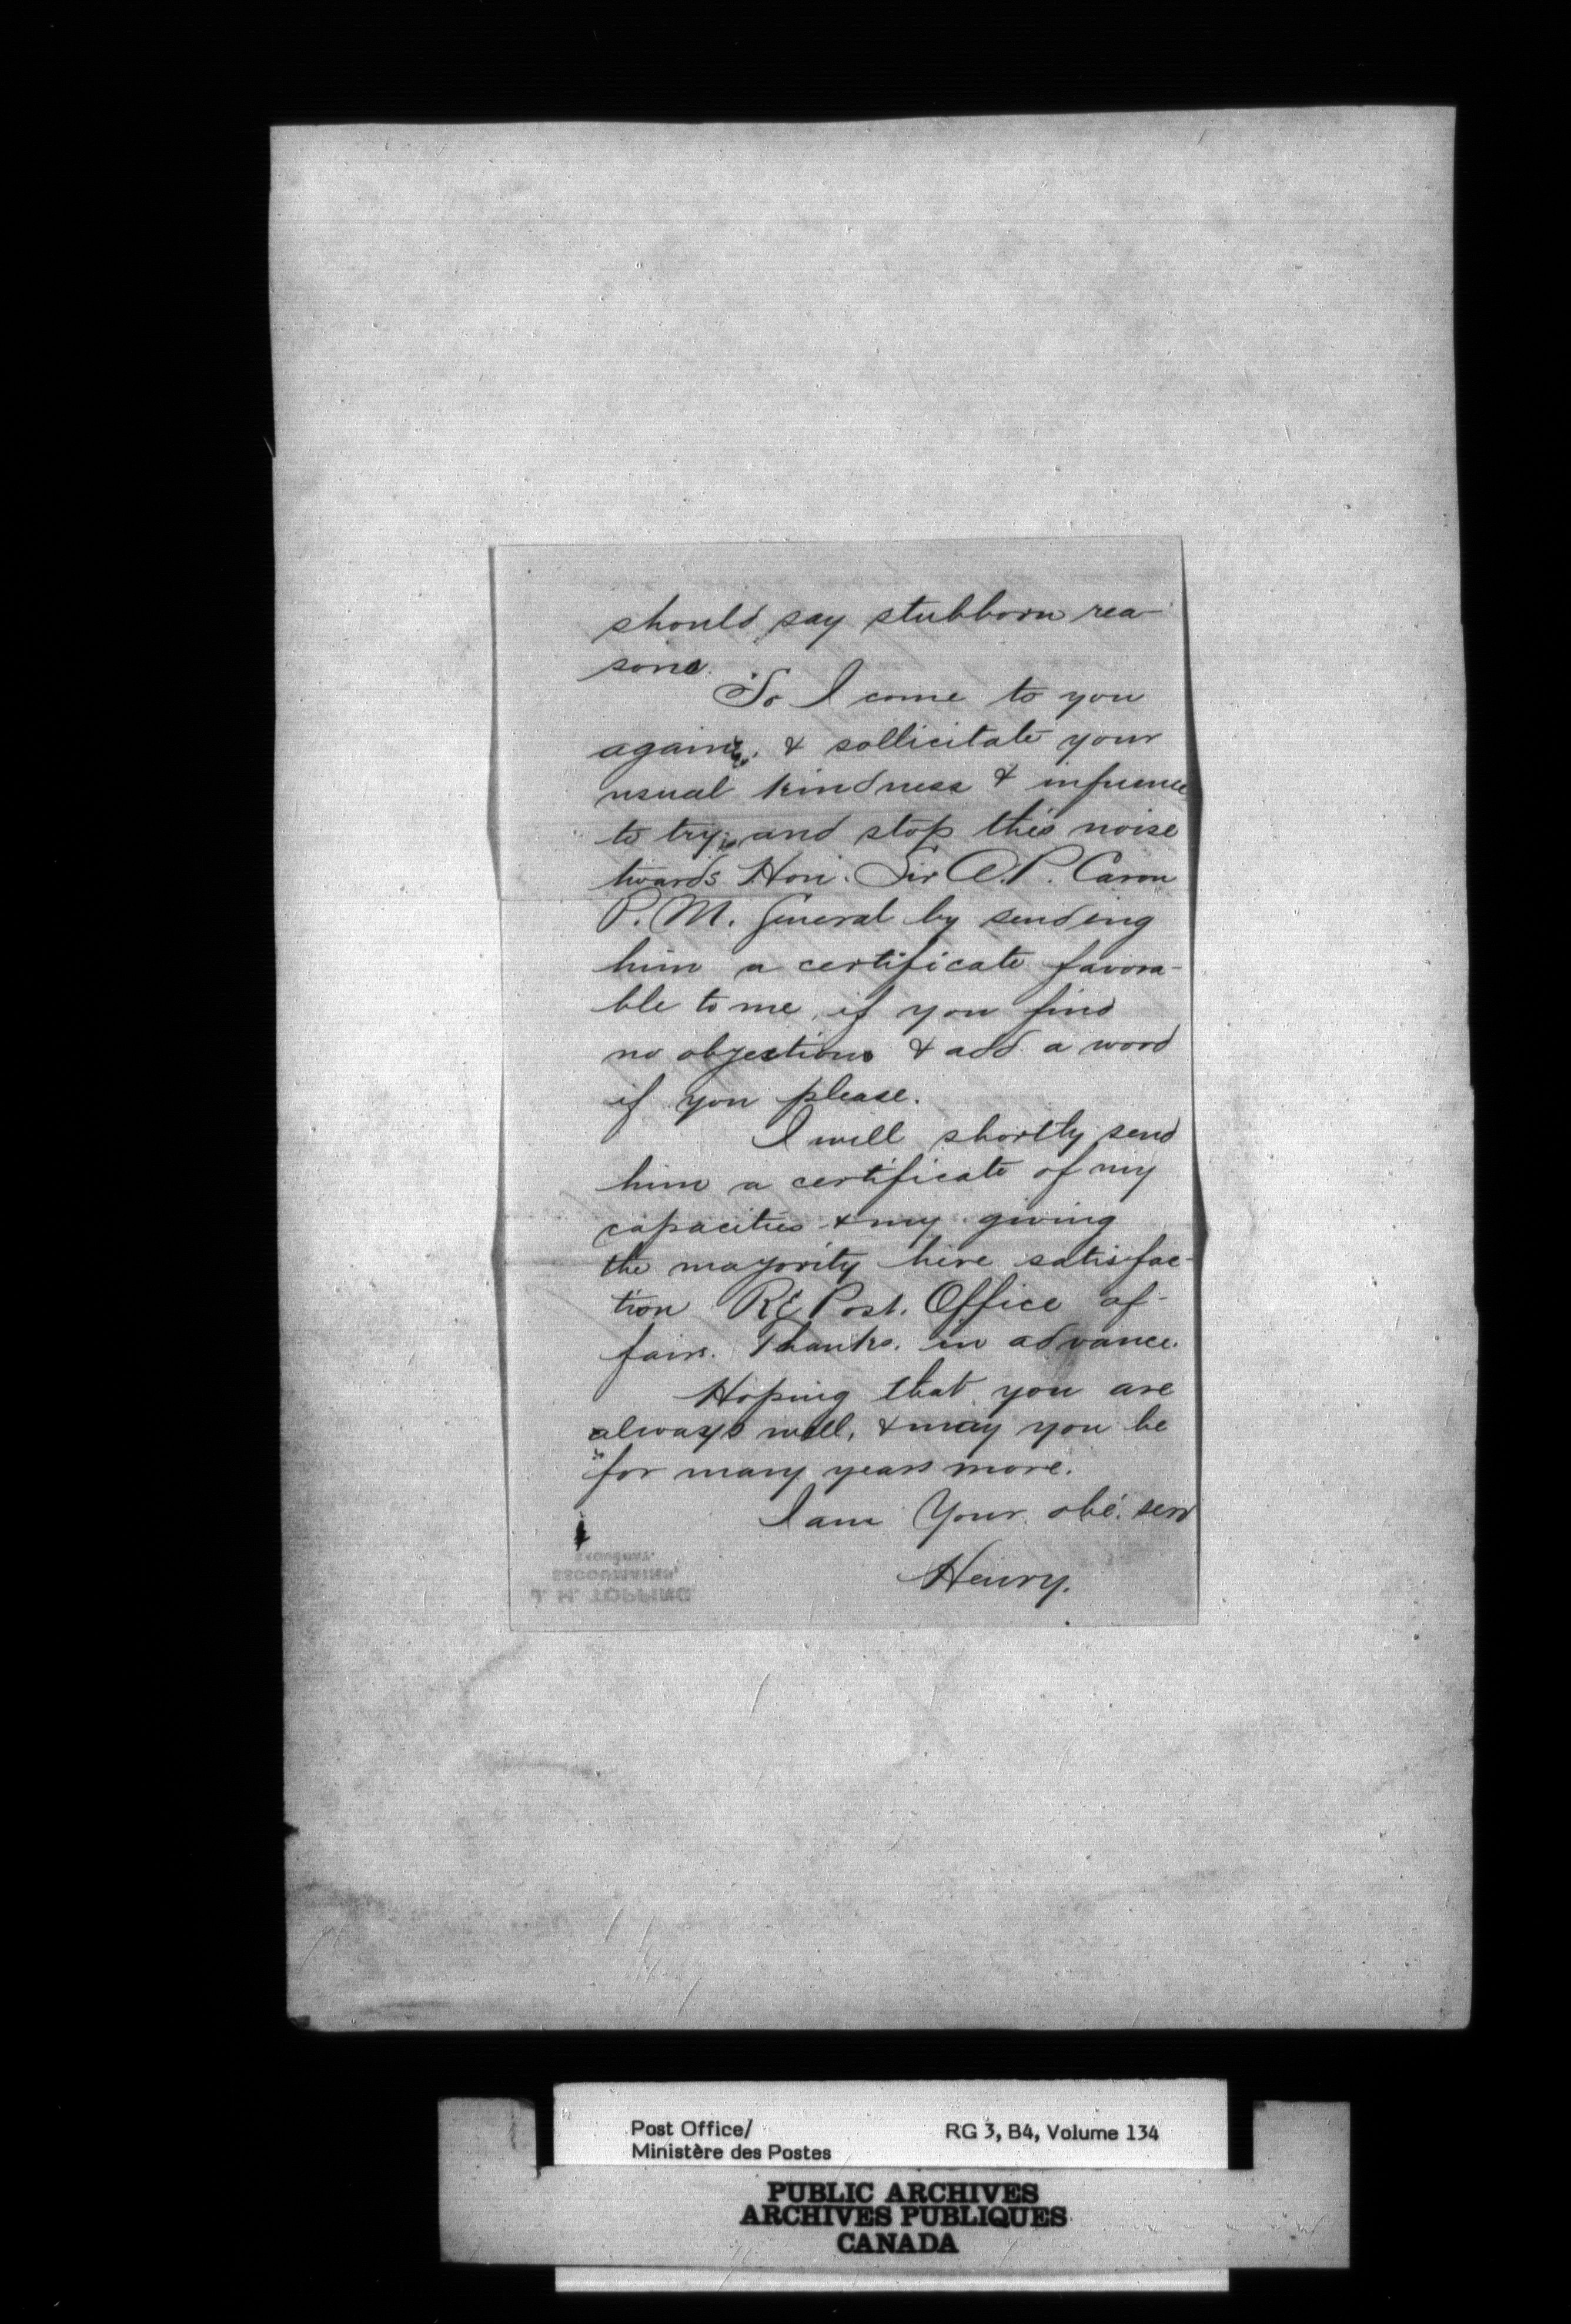 should say stubborn rea-
sons.
So I come to you
again, & sollicitate your
usual kindness & infuence
to try and stop this noise
twards Hon. Sir A.P. Caron
P. M. General by sending
him a certificate favora-
ble to me, if you find
no objections & add a word
if you please.
I will shortly send
him a certificate of my
capacities & my giving
the majority here satisfac-
tion RE Post. Office af-
fairs. Thanks. in advance.
Hoping that you are
always well, & may you be
for many years more.
I am Your obé. serv
Henry.
J. H. TOPPING
ESCOUMAINS,
SAGUENAY.
Post Office/
Ministère des Postes
RG 3, B4, Volume 134
PUBLIC ARCHIVES
ARCHIVES PUBLIQUES
CANADA